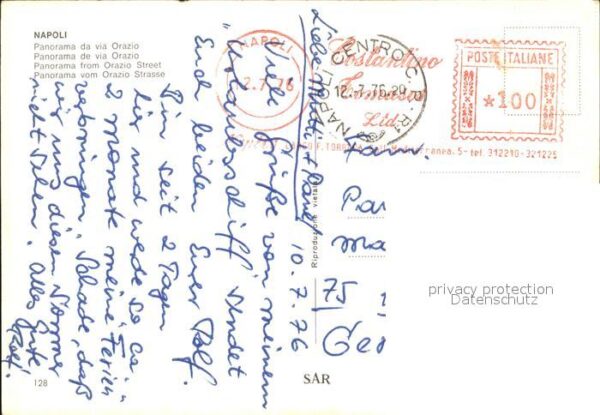 NAPOLI
Panorama da via Orazio
Panorama de via Orazio
Panorama from Orazio Street
Panorama vom Orazio Strasse
NAPOLI
12.7.76
Costantino
Tomasos
Ltd.
NAPOLI CENTRO C.
12.-7.76.20
POSTE ITALIANE
*100
5 - tel. 312210 - 321225
Liebe + 10.7.76
Viele Grüße von meinem
Urlaubsschiff sendet
Euch beiden Euer Rolf.
Bin seit 2 Tagen
hier und werde so ca.
2 Monate meine "Ferien"
verbringen. Schade, daß
wir uns diesen Sommer
nicht sehen. Alles Gute
Rolf.
Fam.
Pa
Ma
75
Ge
Riproduzione vietata
privacy protection
Datenschutz
128
SAR